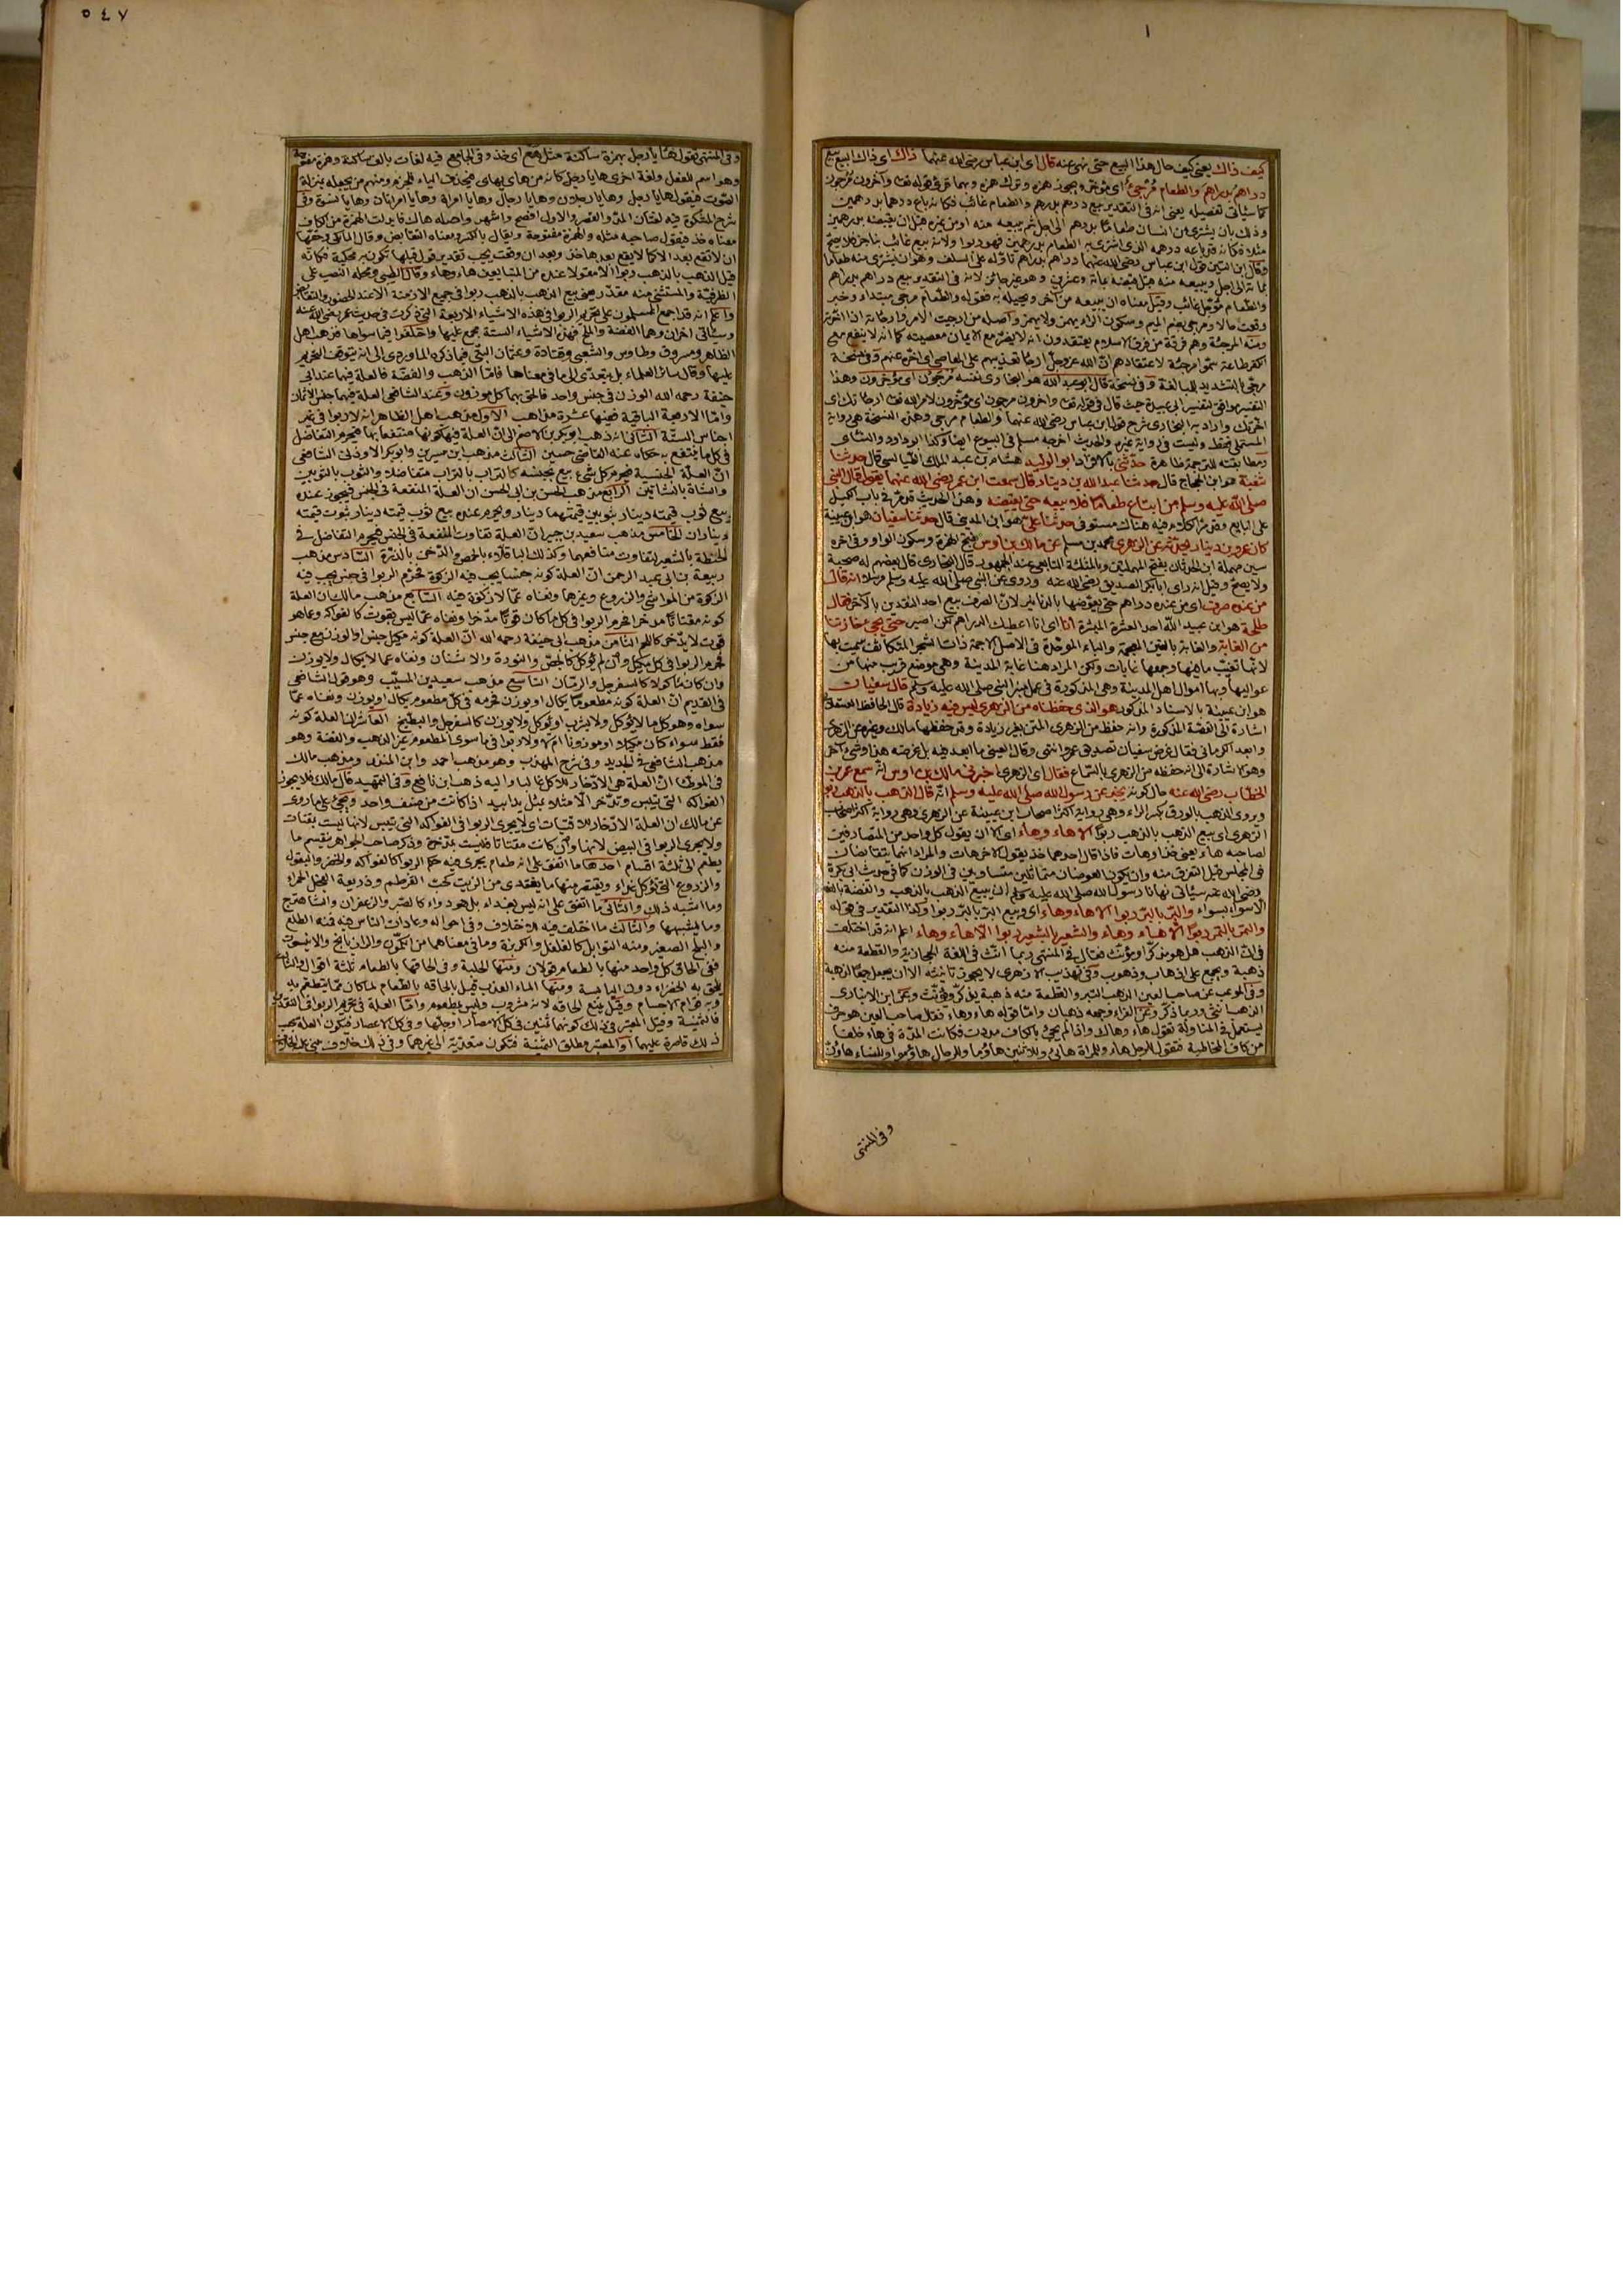 ١
كيف ذاك يعني كيف حال هذا البيع حتى نهى عنه قال اى ابن عباس رضي الله عنهما ذاك اى ذاك البيع بيع
دراهم بدراهم والطعام مُرْجَئ اى مؤخر ويجوز همزه وترك همزه وبهما قرئ قوله تعا وآخرون مُرجَون
كما سيأتى تفصيله يعني انه في التقدير بيع درهم بدرهم والطعام غائب فكانه باع درهما بدرهمين
وذلك بأن يشترى من انسان طعاما بدرهم الى اجل ثم يبيعه منه او من غيره قبل ان يقبضه بدرهمين
مثلا فكانه قد باعه درهمه الذى اشترى به الطعام بدرهمين فهو ربوا ولانه بيع غائب بناجز فلا يصح
وقال ابن التين قول ابن عباس رضي الله عنهما دراهم بدراهم تأوله على السلف وهو ان يشترى منه طعاما
بمائة الى اجل ويبيعه منه قبل قبضه بمائة وعشرين وهو غير جائز لانه في التقدير بيع دراهم بدراهم
والطعام مؤجل غائب وقيل معناه ان يبيعه من آخر ويحيله به فقوله والطعام مرجى مبتداء وخبر
وقعت حالا ومرجى بضم الميم وسكون الراء يهمز ولا يهمز واصله من ارجيت الامر وارجأته اذا اخرته
ومنه المرجئة وهم فرقة من فرق الاسلام يعتقدون انه لا يضر مع الايمان معصيته كما انه لا ينفع مع
الكفر طاعة سموا مرجئة لاعتقادهم ان الله عز وجل ارجأ تعذيبهم على المعاصي اى اخره عنهم وفي نسخة
مرجّى بالتشديد للمبالغة وفي نسخة قال ابو عبد الله هو البخارى نفسه مُرجَون اى مؤخرون وهذا
التفسير موافق لتفسير ابي عبيدة حيث قال في قوله تعا وآخرون مرجون اى مؤخرون لامر الله تعا ارجأتك اى
اخرتك واراد به البخارى شرح قول ابن عباس رضي الله عنهما والطعام مرجى وهذه النسخة هي رواية
المستملي فقط وليست في رواية غيره والحديث اخرجه مسلم في البيوع ايضا وكذا ابو داود والنسائى
ومطابقته للترجمة ظاهرة حدّثني بالافراد ابو الوليد هشام بن عبد الملك الطيالسى قال حدثنا
شعبة هو ابن الحجاج قال حدثنا عبد الله بن دينار قال سمعت ابن عمر رضي الله عنهما يقول قال النبي
صلى الله عليه وسلم من ابتاع طعاما فلا يبيعه حتى يقبضه وهذا الحديث قد مرّ في باب الكيل
على البايع ومرّ الكلام فيه هناك مستوفى حدثنا علي هو ابن المديني قال حدثنا سفيان هو ابن عيينة
كان عمرو بن دينار يحدثه عن الزهرى محمد بن مسلم عن مالك بن اوس بفتح الهمزة وسكون الواو وفي اخره
سين مهملة ابن الحدثان بفتح المهملتين وبالمثلثة التابعى عند الجمهور قال البخارى قال بعضهم له صحبة
ولا يصح وقيل انه راى ابا بكر الصديق رضي الله عنه وروى عن النبي صلى الله عليه وسلم مرسلا انه قال
من عنده صرف اى من عنده دراهم حتى يعوضها بالدنانير لان الصرف بيع احد النقدين بالاخر فقال
طلحة هو ابن عبيد الله احد العشرة المبشرة أنا اى انا اعطيك الدراهم لكن اصبر حتى يجئ خازننا
من الغابة والغابة بالغين المعجمة والباء الموحدة في الاصل الاجمة ذات الشجر المتكاثف سميت بها
لانها تغيب ما فيها وجمعها غابات ولكن المراد هنا غابة المدينة وهي موضع قريب منها من
عواليها وبها اموال اهل المدينة وهي المذكورة في عمل منبر النبي صلى الله عليه وسلم قال سفيان
هو ابن عيينة بالاسناد المذكور هو الذى حفظناه من الزهرى ليس فيه زيادة قال الحافظ العسقلاني
اشارة الى القصة المذكورة وانه حفظ من الزهرى المتن بغير زيادة وقد حفظها مالك وغيره عن الزهرى
وابعد الكرماني فقال غرض سفيان تصديق عمرو انتهى وقال العيني ما ابعد فيه بل غرضه هذا وشئ آخر
وهو الاشارة الى انه حفظه من الزهرى بالسماع فقال اى الزهرى اخبرنى مالك بن اوس انه سمع عمر بن
الخطاب رضي الله عنه حال كونه يخبر عن رسول الله صلى الله عليه وسلم انه قال الذهب بالذهب ربوا
ويروى الذهب بالورق بكسر الراء وهي رواية اكثر اصحاب ابن عيينة عن الزهرى وهي رواية اكثر اصحاب
الزهرى اى بيع الذهب بالذهب ربوا الا هاء وهاء اى الا ان يقول كل واحد من المتصارفين
لصاحبه هاء يعني خذ او هات فاذا قال احدهما خذ يقول الاخر هات والمراد انهما يتقابضان
في المجلس قبل التفرق منه وان يكون العوضان متماثلين متساويين في الوزن كما في حديث ابي بكرة
رضي الله عنه سيأتى نهانا رسول الله صلى الله عليه وسلم ان يبيع الذهب بالذهب والفضة بالفضة
الا سواء بسواء والبُرّ بالبُرّ ربوا الا هاء وهاء اى وبيع البر بالبر ربوا وكذا التقدير في قوله
والتمر بالتمر ربوا الا هاء وهاء والشعير بالشعير ربوا الا هاء وهاء اعلم انه قد اختلف
في ان الذهب هل هو مذكر او مؤنث فقال في المنتهى ربما انث في اللغة الحجازية والقطعة منه
ذهبة ويجمع على اذهاب وذهوب وفي تهذيب الازهرى لا يجوز تأنيثه الا ان يجعل جمعا لذهبة
وفي الموعب عن صاحب العين الذهب التبر والقطعة منه ذهبة يذكر ويؤنث وعن ابن الانبارى
الذهب انثى وربما ذكر وعن الفراء وجمعه ذهبان وامّا قوله هاء وهاء فقال صاحب العين هو حرف
يستعمل في المناولة تقول هاء وهاك واذا لم يجئ بالكاف مددت فكانت المدة في هاء خلفا
من كاف المخاطبة فتقول للرجل هاء وللمرأة هائى وللاثنين هاؤما وللرجال هاؤموا وللنساء هاؤنّ
وفي المنتهى
٥٤٧
وفي المنتهى تقول هأ يا رجل بهمزة ساكنة مثل هع اى خذ وفي الجامع فيه لغات بالف ساكنة وهمزة مفتوحة
وهو اسم للفعل ولغة اخرى هايا رجل كانه من هاى يهاى فيحذف الياء للجزم ومنهم من يجعله بمنزلة
الصوت فيقول هايا رجل وهايا رجلان وهايا رجال وهايا امرأة وهايا امرأتان وهايا نسوة وفي
شرح المشكوة فيه لغتان المدّ والقصر والاول افصح واشهر واصله هاك فابدلت الهمزة من الكاف
معناه خذ فيقول صاحبه مثله والهمزة مفتوحة ويقال بالكسر ومعناه التقابض وقال المالكى وحقها
ان لا تقع بعد الا كما لا يقع بعدها خذ وبعد ان وقعت يجب تقدير قول قبلها تكون به محكية فكانه
قيل الذهب بالذهب ربوا الا مقولا عنده من المتبايعين هاء وهاء وقال الطيبى ومحله النصب على
الظرفية والمستثنى منه مقدر يعني بيع الذهب بالذهب ربوا في جميع الازمنة الا عند الحضور والتقابض
واعلم انه قد اجمع المسلمون على تحريم الربوا في هذه الاشياء الاربعة التي ذكرت في حديث عمر رضي الله عنه
وسيأتى اخران وهما الفضة والملح فهذه الاشياء الستة مجمع عليها واختلفوا فيما سواها فذهب اهل
الظاهر ومسروق وطاوس والشعبى وقتادة وعثمان البتّى فيما ذكره الماوردى الى انه يتوقف التحريم
عليها وقال سائر العلماء بل يتعدّى الى ما في معناها فامّا الذهب والفضة فالعلة فيهما عند ابي
حنيفة رحمه الله الوزن في جنس واحد فالحق بهما كل موزون وعند الشافعى العلة فيهما جنس الاثمان
وامّا الاربعة الباقية ففيها عشرة مذاهب الاول مذهب اهل الظاهر انه لا ربوا في غير
اجناس الستّة الثانى انه ذهب ابو بكر بن الاصم الى انّ العلة فيها كونها منتفعا بها فيحرم التفاضل
في كل ما ينتفع به حكاه عنه القاضى حسين الثالث مذهب ابن سيرين وابو بكر الاودنى الشافعى
انّ العلّة الجنسية فيحرم كل شئ بيع بجنسه كالتراب بالتراب متفاضلا والثوب بالثوبين
والشاة بالشاتين الرابع مذهب الحسن بن ابي الحسن ان العلة المنفعة في الجنس فيجوز عنده
بيع ثوب قيمته دينار بثوبين قيمتهما دينار ويحرم عنده بيع ثوب قيمته دينار بثوب قيمته
ديناران الخامس مذهب سعيد بن جبير انّ العلة تفاوت المنفعة في الجنس فيحرم التفاضل في
الحنطة بالشعير لتفاوت منافعهما وكذلك الباقلاء بالحمص والدخن بالذرة السّادس مذهب
ربيعة بن ابي عبد الرحمن انّ العلة كونه جنسا يجب فيه الزكوة فحرم الربوا في جنس يجب فيه
الزكوة من المواشى والزروع وغيرهما ونفاه عمّا لا زكوة فيه السّابع مذهب مالك ان العلة
كونه مقتاتا مدّخرا فحرم الربوا في كل ما كان قوتا مدّخرا ونفاه عمّا ليس بقوت كالفواكه وعمّا هو
قوت لا يدّخر كاللحم الثامن مذهب ابي حنيفة رحمه الله انّ العلة كونه مكيل جنس او الوزن مع جنس
فحرم الربوا في كل مكيل وان لم يؤكل كالجصّ والنورة والاشنان ونفاه عما لا يكال ولا يوزن
وان كان مأكولا كالسفرجل والرمّان التاسع مذهب سعيد بن المسيّب وهو قول الشافعى
في القديم انّ العلة كونه مطعومًا يكال او يوزن فحرمه في كلّ مطعوم يكال او يوزن ونفاه عمّا
سواه وهو كل ما لا يؤكل ولا يشرب او يؤكل ولا يوزن كالسفرجل والبطيخ العاشر ان العلة كونه
فقط سواء كان مكيلا او موزونا ام لا ولا ربوا في ما سوى المطعوم غير الذهب والفضة وهو
مذهب الشافعى في الجديد وفي شرح المهذب وهو مذهب احمد وابن المنذر ومذهب مالك
في الموطا ان العلة هي الادّخار للاكل غالبا واليه ذهب ابن نافع وفي التمهيد قال مالك فلا يجوز
الفواكه التي تيبس وتدّخر الا مثلا بمثل يدا بيد اذا كانت من صنف واحد ويجئ على ما روى
عن مالك ان العلة الادّخار للاقتيات اى لا يجرى الربوا في الفواكه التي تيبس لانها ليست بقتات
ولا يجرى الربوا في البيض لانها وان كانت مقتاتا فليست بمدّخرة وذكر صاحب الجواهر ينقسم ما
يطعم الى ثلثة اقسام احدها ما اتفق على انه طعام يجرى فيه حكم الربوا كالفواكه والخضر والبقول
والزروع التي تؤكل غذاء ويعتصر منها ما يغتذى من الزيت كحب القرطم وذريعة الفجل الحمراء
وما اشبه ذلك والثانى ما اتفق على انه ليس بغذاء بل هو دواء كالصبر والزعفران والشاهترج
وما يشبهها والثالث ما اختلف فيه للاختلاف في احواله وعادات الناس فيه فمنه الطلع
والبلح الصغير ومنه التوابل كالفلفل والكزبرة وما في معناهما من الكمّون والرازيانج والانيسون
ففي الحاق كل واحد منها بالطعام قولان ومنها الحلبة وفي الحاقها بالطعام ثلثة اقوال والثالث
يلحق به الخضراء دون اليابسة ومنها الماء العذب قيل بالحاقه بالطعام لما كان ممّا يتطعّم به
وبه قوام الاجسام وقيل بمنع الحاقه لانه مشروب وليس بمطعوم وامّا العلة في تحريم الربوا في النقدين
فالثمنية وقيل المعتبر في ذلك كونهما ثمنين في كل الامصار او جلّها وفي كل الاعصار فتكون العلة بحسب
ذلك قاصرة عليهما او المعتبر مطلق الثمنية فتكون متعدّية الى غيرهما وفي ذلك خلاف